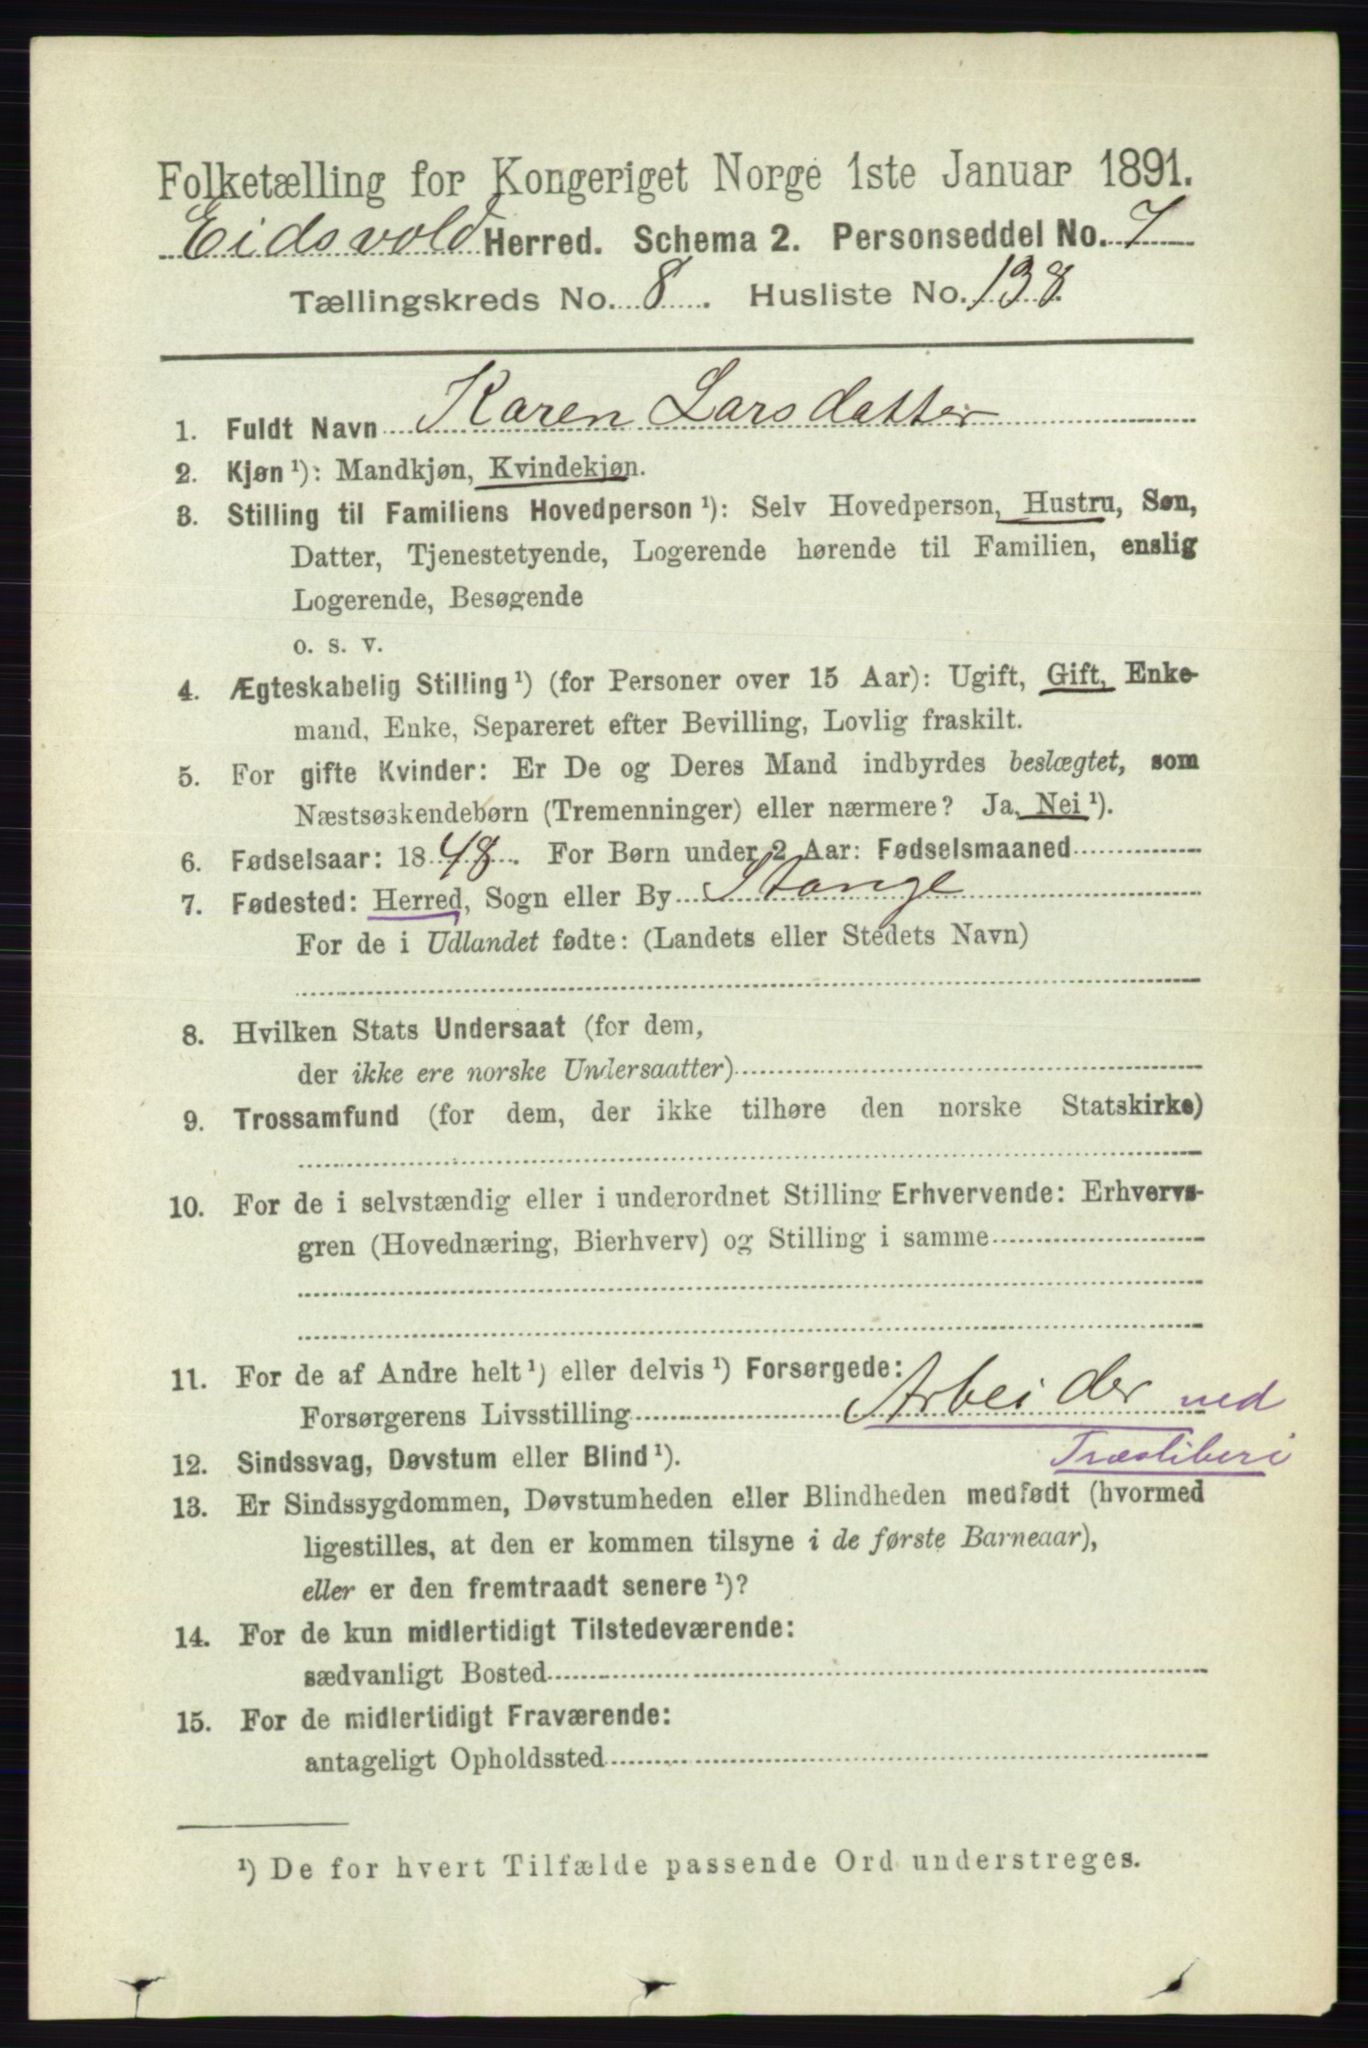 Folketælling for Kongeriget Norge 1ste Januar 1891.
Eidsvold Herred. Schema 2. Personseddel No. 7
Tællingskreds No. 8. Husliste No. 138
1. Fuldt Navn Karen Larsdatter
2. Kjøn ¹): Mandkjøn, Kvindekjøn.
3. Stilling til Familiens Hovedperson ¹): Selv Hovedperson, Hustru, Søn,
Datter, Tjenestetyende, Logerende hørende til Familien, enslig
Logerende, Besøgende
o. s. v.
4. Ægteskabelig Stilling ¹) (for Personer over 15 Aar): Ugift, Gift, Enke-
mand, Enke, Separeret efter Bevilling, Lovlig fraskilt.
5. For gifte Kvinder: Er De og Deres Mand indbyrdes beslægtet, som
Næstsøskendebørn (Tremenninger) eller nærmere? Ja, Nei ¹).
6. Fødselsaar: 1848. For Børn under 2 Aar: Fødselsmaaned
7. Fødested: Herred, Sogn eller By Stange
For de i Udlandet fødte: (Landets eller Stedets Navn)
8. Hvilken Stats Undersaat (for dem,
der ikke ere norske Undersaatter)
9. Trossamfund (for dem, der ikke tilhøre den norske Statskirke)
10. For de i selvstændig eller i underordnet Stilling Erhvervende: Erhvervs-
gren (Hovednæring, Bierhverv) og Stilling i samme
11. For de af Andre helt ¹) eller delvis ¹) Forsørgede:
Forsørgerens Livsstilling Arbeider ved
Træsliberi
12. Sindssvag, Døvstum eller Blind ¹).
13. Er Sindssygdommen, Døvstumheden eller Blindheden medfødt (hvormed
ligestilles, at den er kommen tilsyne i de første Barneaar),
eller er den fremtraadt senere ¹)?
14. For de kun midlertidigt Tilstedeværende:
sædvanligt Bosted
15. For de midlertidigt Fraværende:
antageligt Opholdssted
¹) De for hvert Tilfælde passende Ord understreges.